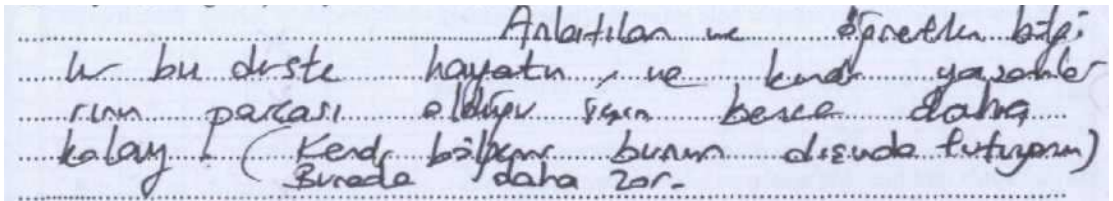 Anlatılan ve öğretilen bilgi
ler bu derste hayatın, ve kendi yaşamla
rının parçası olduğu için bence daha
kolay! (Kendi bölgemi bunun dışında tutuyorum)
Burada daha zor.